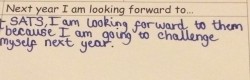 Next year I am looking forward to...
SATS, I am looking forward to them
because I am going to challenge
myself next year.